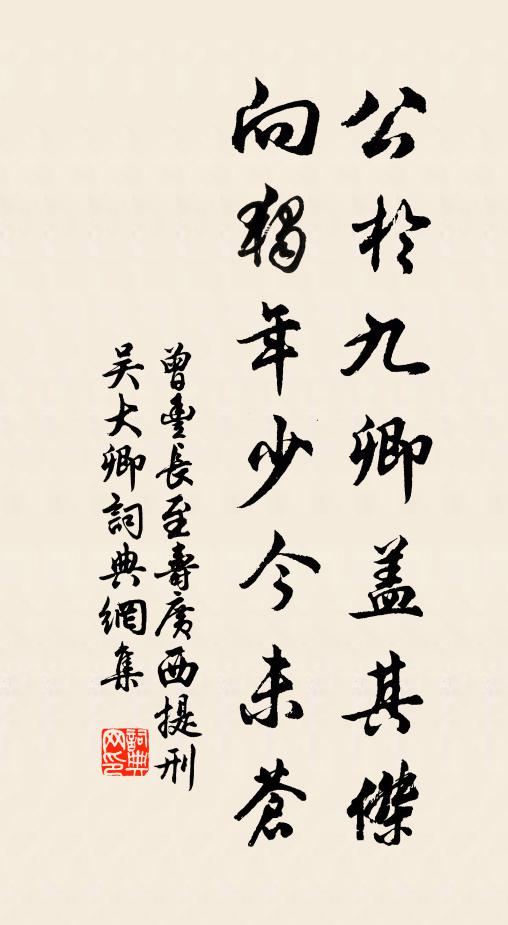 公於九卿盖其傑
向獨年少今未蒼
曾豊長至壽廣西提刑
吴大卿詞典網集
詞典网印